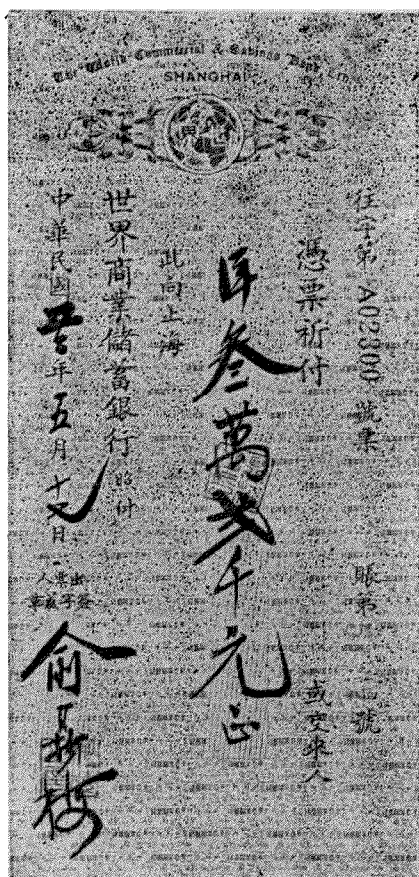 The World Commercial & Savings Bank Ltd.
SHANGHAI
往字第 A02300 號票 賬第 號
憑票祈付 或交來人
叁萬弍千元正
此向上海
世界商業儲蓄銀行 照付
中華民國 年五月十七日
出票人
簽字蓋章
俞 梅